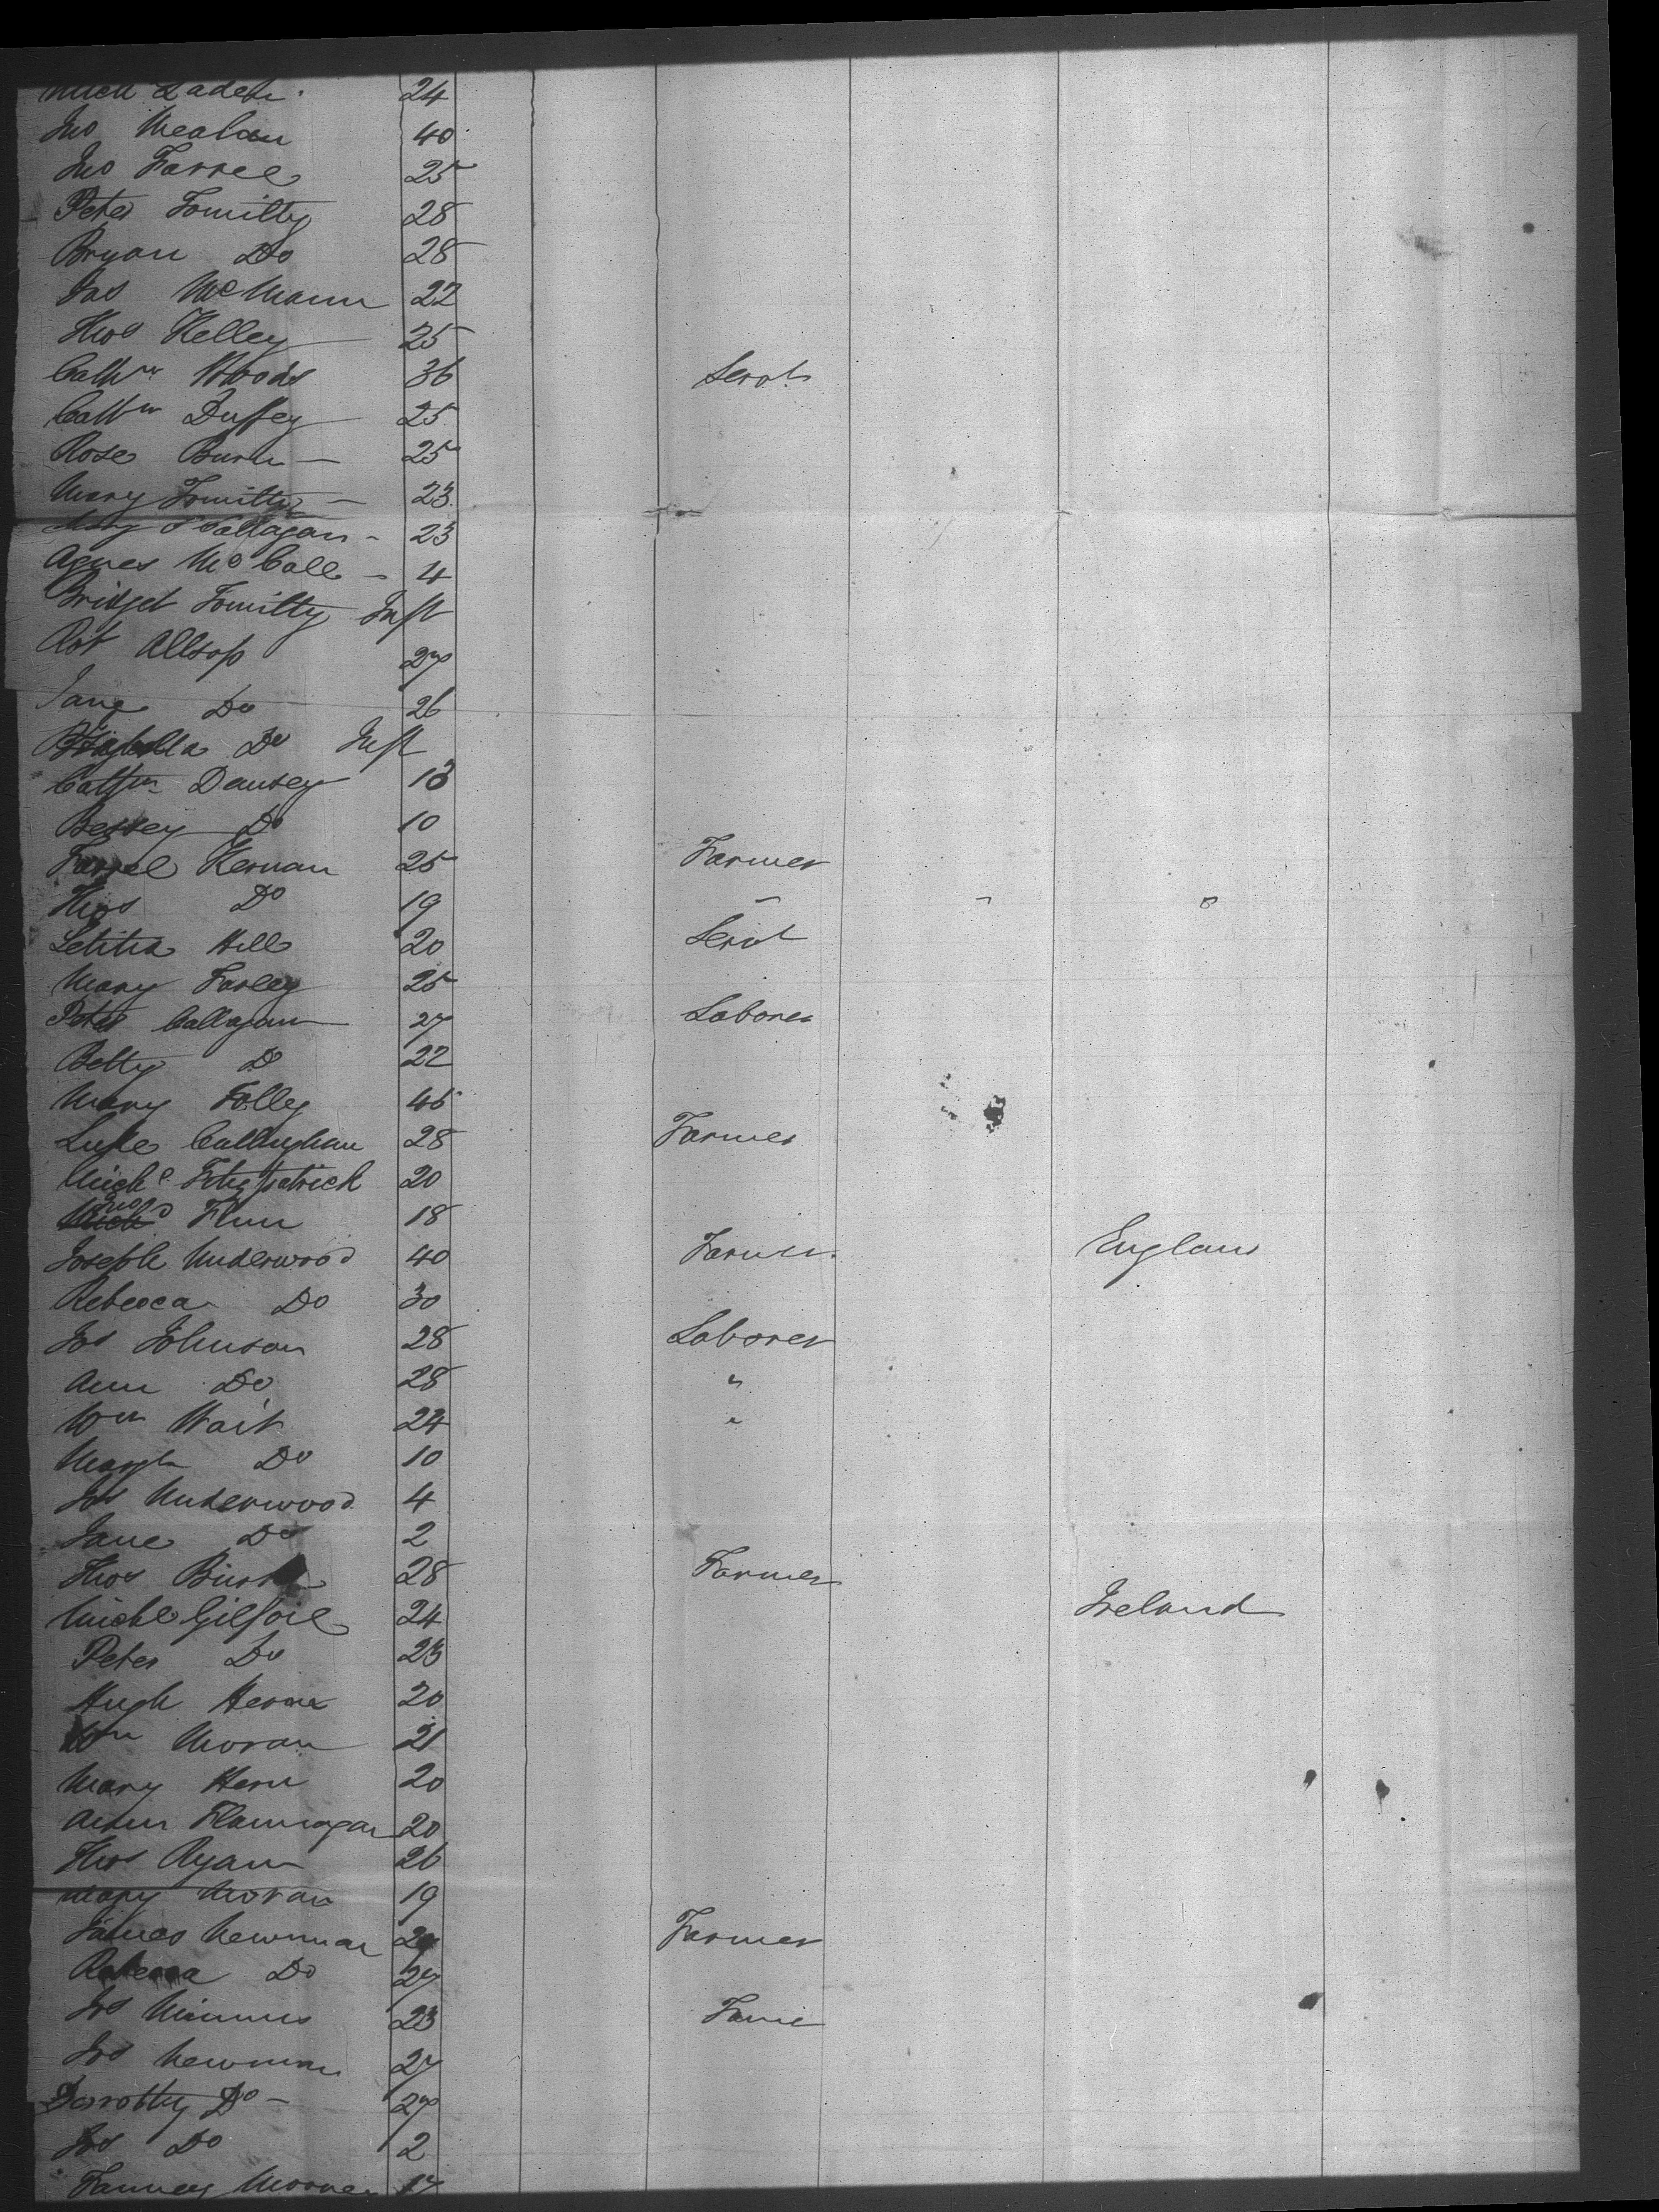 Mich Laden 24
Jno Mealan 40
Jno Farrel 25
Peter Tomilty 28
Bryan Do 28
Jas McMann 22
Thos Kelley 25
Cathn Woods 36 Servt
Cathn Duffey 25
Rose Burn — 25
Mary Tomilty — 23
Mary O Callagan - 23
Agnes McCall - 4
Bridget Tomilty Inft
Rot Allsop 27
Jane Do 26
Do Inft
Cathn Dausey 18
Bessey Do 10
Farrel Kernan 25 Farmer
Thos Do 19 " " "
Letitia Hill 20 Servt
Mary Farley 25
Peter Callagan 27 Laborer
Betty Do 22
Mary Folley 45
Luke Callughan 28 Farmer
Michl Fitzpatrick 20
Jno Flinn 18
Joseph Underwood 40 Farmer England
Rebecca Do 30
Jos Johnson 28 Laborer
Ann Do 28 "
Wm Wait 24 "
Margt Do 10
Jos Underwood 4
Jane Do 2
Thos 28 Farmer
Michl Gilfoil 24 Ireland
Peter Do 23
Hugh 20
Wm Moran 21
Mary Hern 20
Flannagan 20
Thos Ryan 26
Mary Moran 19
James Newman Farmer
Rebecca Do 27
Jos 23 Farme
Jos Newman 27
Dorrothy Do - 27
Jos Do 2
Fanney 17